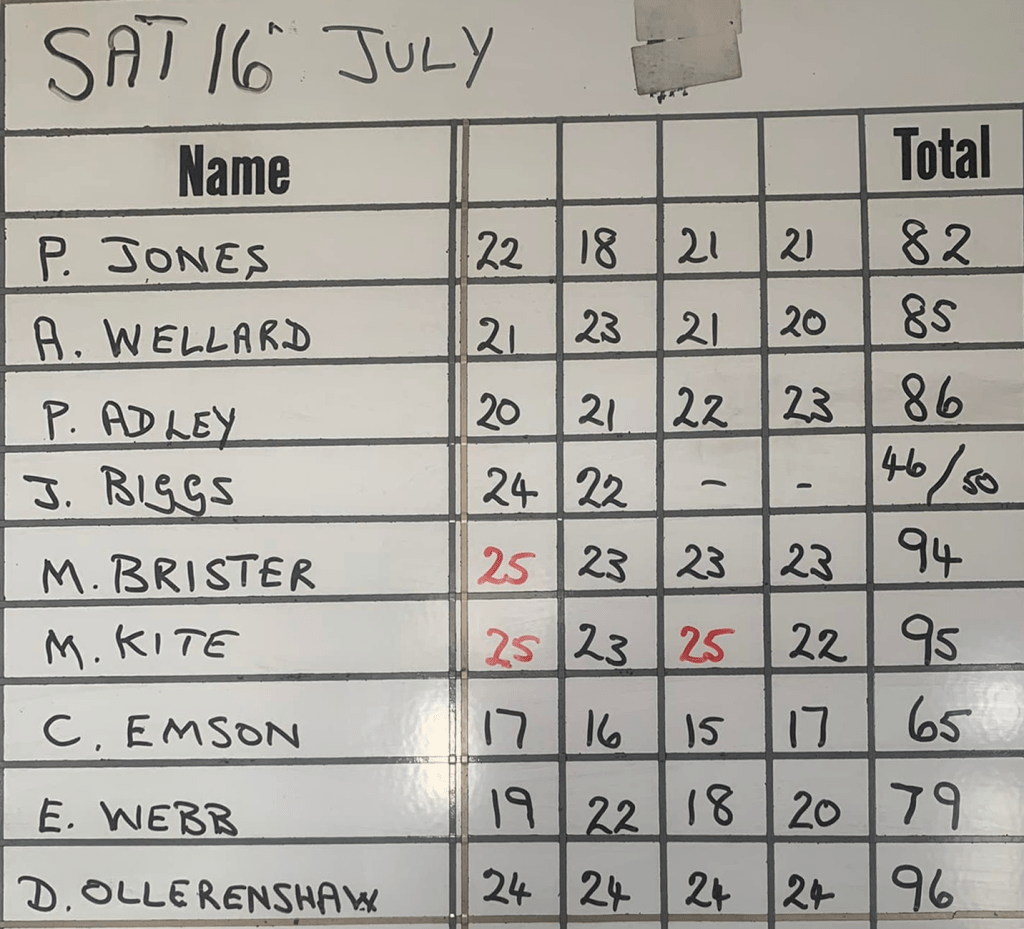 SAT 16" JULY
Name Total
P. JONES 22 18 21 21 82
A. WELLARD 21 23 21 20 85
P. ADLEY 20 21 22 23 86
J. BIGGS 24 22 - - 46/50
M. BRISTER 25 23 23 23 94
M. KITE 25 23 25 22 95
C. EMSON 17 16 15 17 65
E. WEBB 19 22 18 20 79
D. OLLERENSHAW 24 24 24 24 96